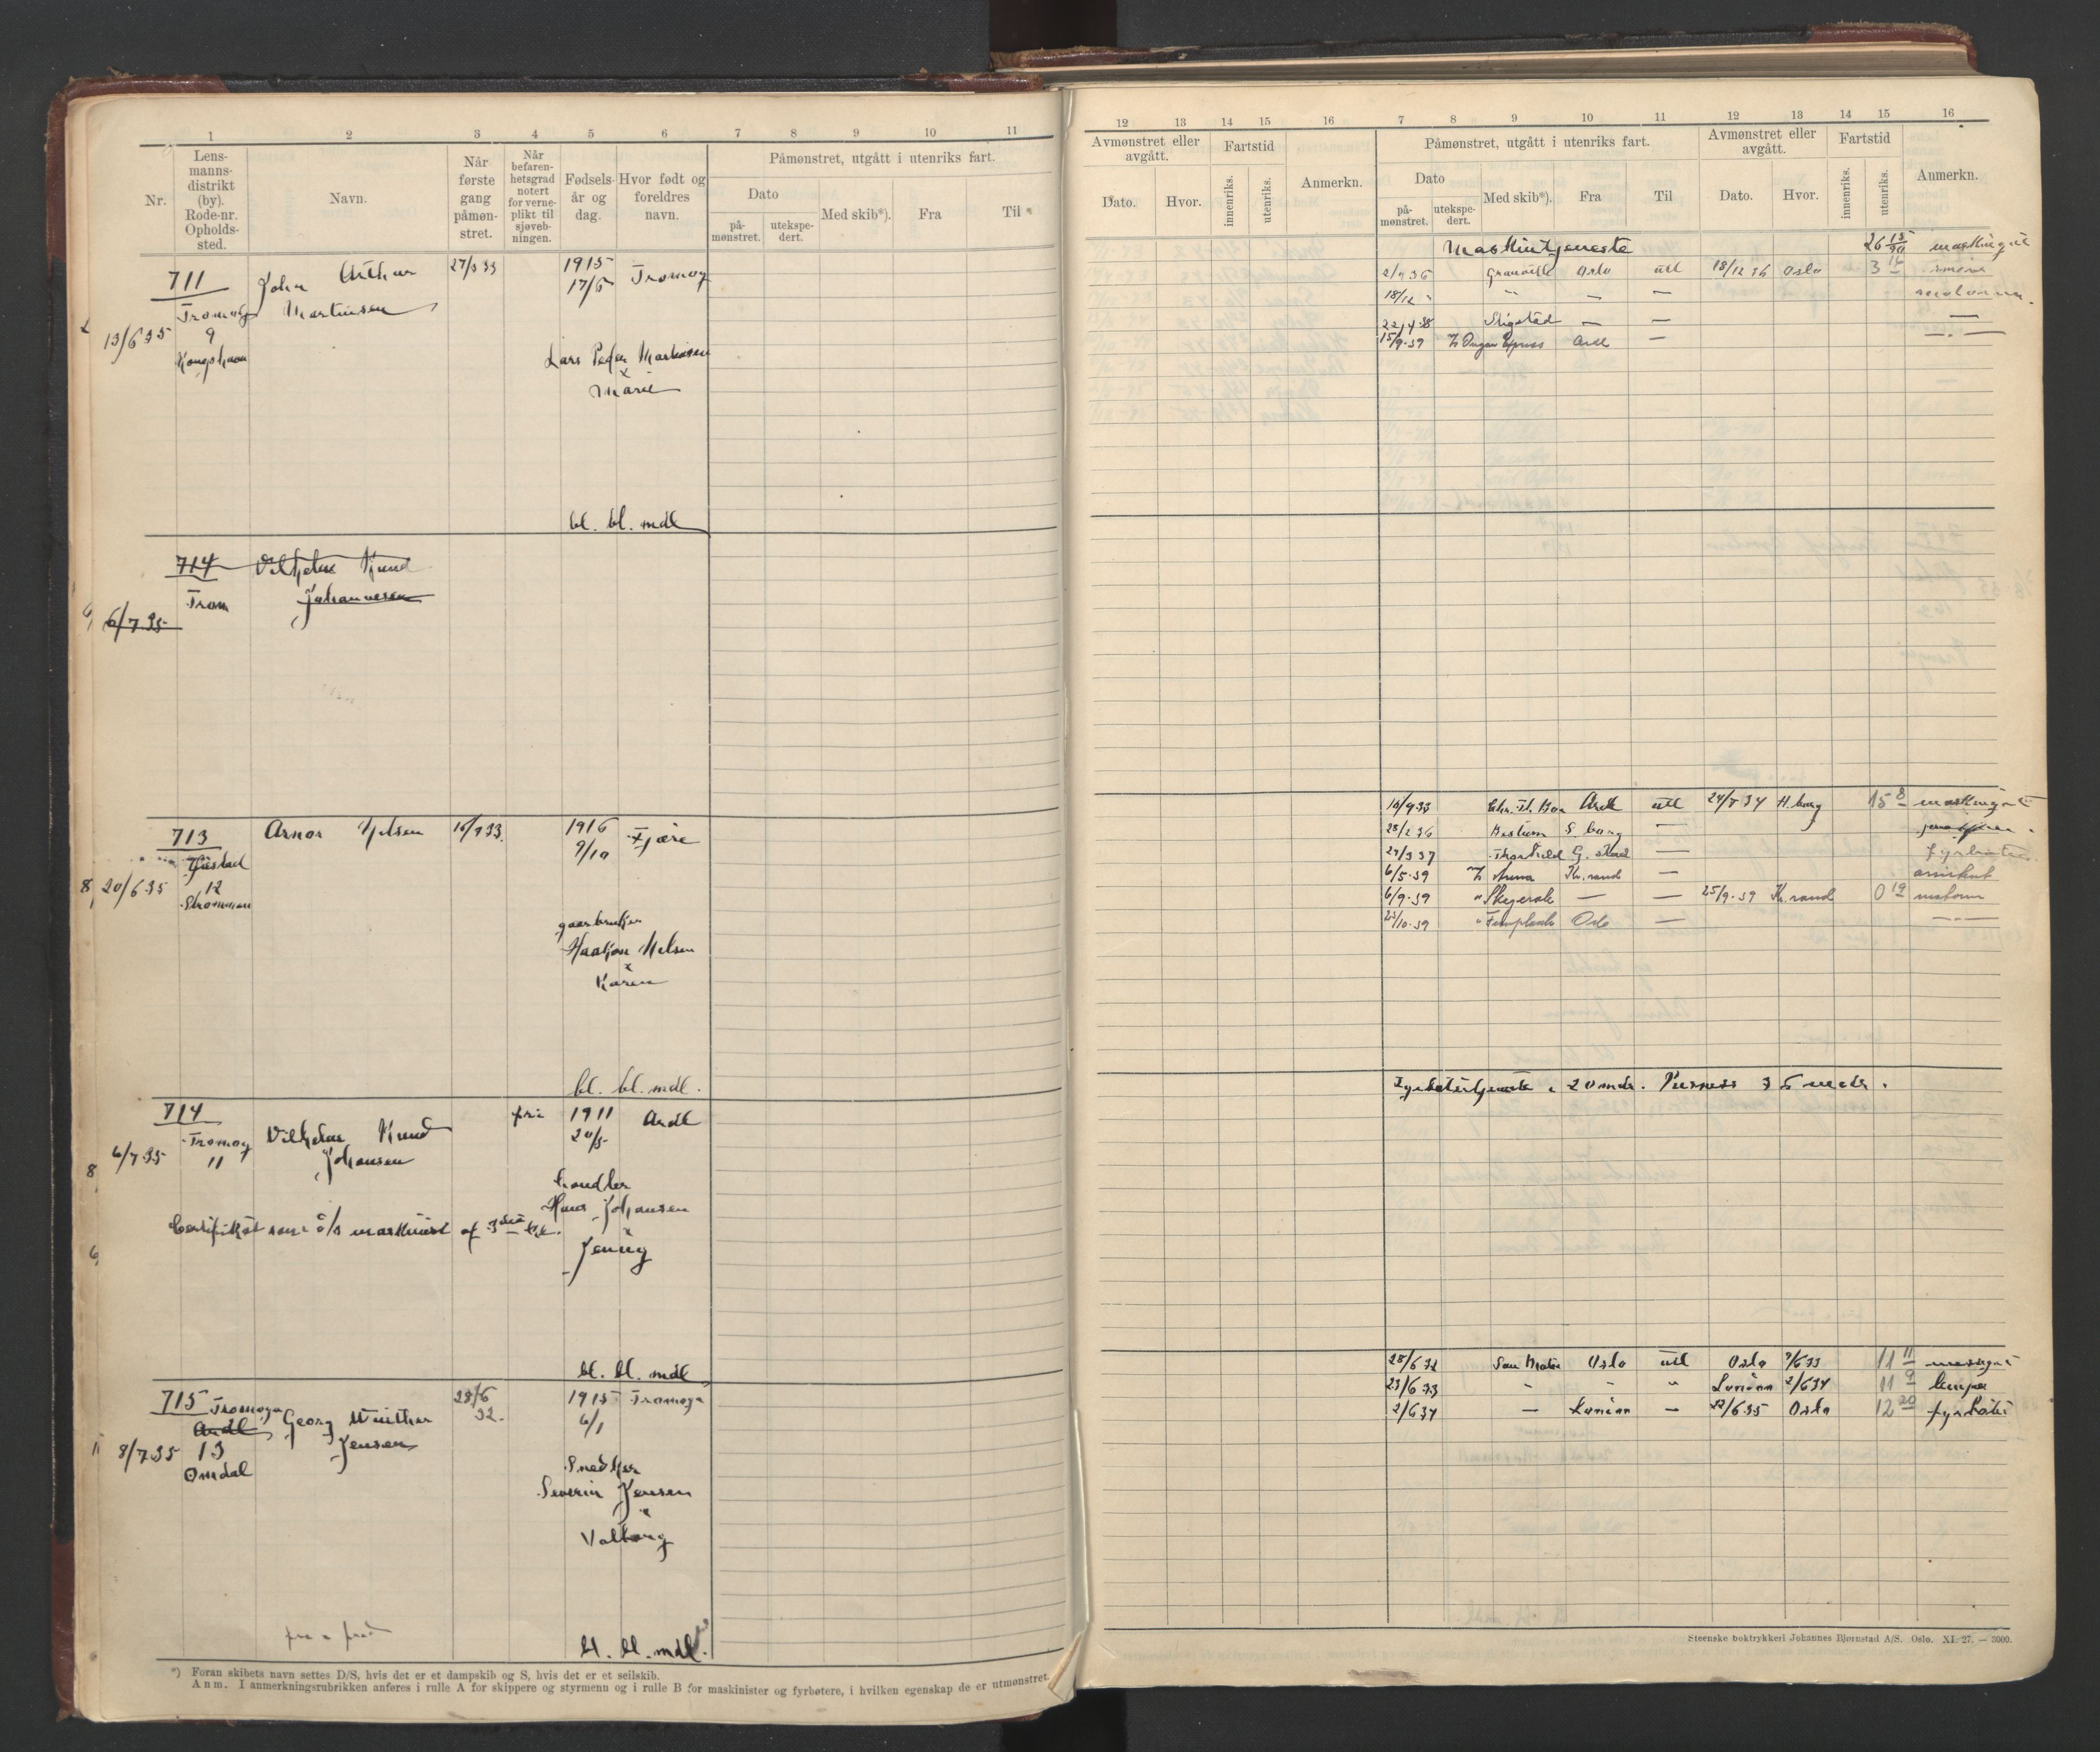 1 2 3 4 5 6 7 8 9 10 11
Nr.
Lens-
manns-
distrikt
(by).
Rode-nr.
Opholds-
sted.
Navn.
Når
første
gang
påmøn-
stret.
Når
befaren-
hetsgrad
notert
for verne-
plikt til
sjøveb-
ningen.
Fødsels-
år og
dag.
Hvor født og
foreldres
navn.
Påmønstret, utgått i utenriks fart.
Dato
på-
mønstret.
utekspe-
dert.
Med skib*).
Fra
Til
711 John Arthur 27/3 33 1915 Tromøy
Tromøy Martinsen 17/6
13/6 35 9
Kongshavn
Lars Peder Martinsen
x
Marie
bl. bl. mdl
714 Vilhelm Knud
Trom Johannesen
6/7 35
713 Arnor Nelsen 16/9 33. 1916 Fjære
9/10
8, 20/6 35 12
Strømmen
gaarbruker
Haakon Nelsen
x
Karen
bl. bl. mdl.
714 fri 1911 Ardl
Tromøy Vilhelm Knud 20/5
6/7 35 11 Johansen
8
handler
Hans Johansen
Certifikat som o/s maskinist af 3die kl.
Jenny
bl. bl. mdl
715 Tromøya 28/6 32. 1915 Tromøya
Ardl Georg Winther 6/1
8/7 35 13 Jensen
Omdal
Snedker
Severin Jensen
x
Valborg
bl. bl. mdl.
*) Foran skibets navn settes D/S, hvis det er et dampskib og S, hvis det er et seilskib.
Anm. I anmerkningsrubrikken anføres i rulle A for skippere og styrmenn og i rulle B for maskinister og fyrbøtere, i hvilken egenskap de er utmønstret.
12 13 14 15 16 7 8 9 10 11 12 13 14 15 16
Avmønstret eller
avgått.
Dato.
Hvor.
Fartstid
innenriks.
utenriks.
Anmerkn.
Påmønstret, utgått i utenriks fart.
Dato
på-
mønstret.
utekspe-
dert.
Med skib*).
Fra
Til
Avmønstret eller
avgått.
Dato.
Hvor.
Fartstid
innenriks.
utenriks.
Anmerkn.
Maskintjeneste 26 15/30
2/9 36 Granville Oslo utl 18/12 36 Oslo 3 16 smører
18/12 " " — —
22/4 38 Stigstad — — —
15/9-39 Ardl — —
16/9 33 Chr. Th. Boe Ardl utl 24/7 34 H.borg 15 8
28/2 36 Bestum S. borg —
27/3 37 Thorshild G. stad — fyrbøter
6/5-39 Anna Kr.sand —
6/9-39 " Skagerak — — 25/9-39 Kr.sand 0 19
23/10-39 " Oslo —
Fyrbøtertjeneste i 20 mdr.
28/6 32 San Mateo Oslo utl Oslo 9/6 33 11 11 messegut
23/6 33 " " " 2/6 34 11 9 lemper
2/6 34 — — 22/6 35 Oslo 12 20 fyrbøter
Steenske boktrykkeri Johannes Bjørnstad A/S. Oslo. XI. 27. — 3000.